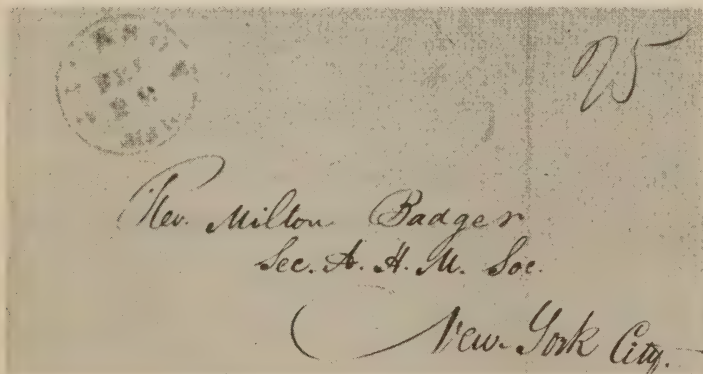 25
Rev. Milton Badger
Sec. A. H. M. Soc.
New-York City.